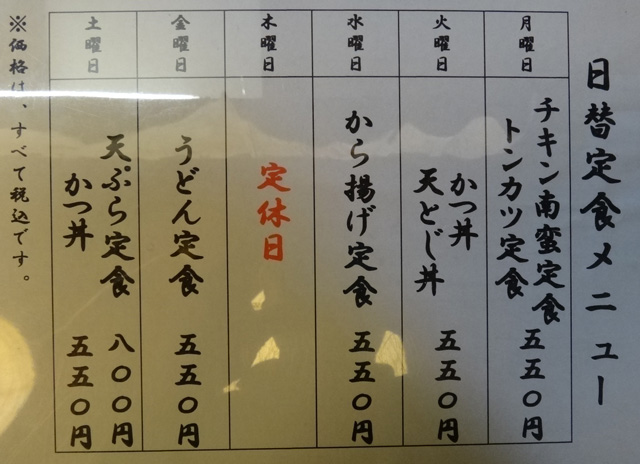 日替定食メニュー
月曜日
チキン南蛮定食
トンカツ定食
五五〇円
火曜日
かつ丼
天とじ丼
五五〇円
水曜日
から揚げ定食
五五〇円
木曜日
定休日
金曜日
うどん定食
五五〇円
土曜日
天ぷら定食 八〇〇円
かつ丼 五五〇円
※価格は、すべて税込です。